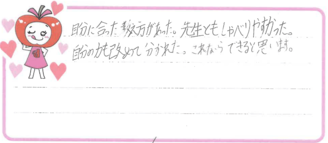 自分に合った教え方があった。先生ともしゃべりやすかった。
自分の力も改めて分かった。これならできると思います。